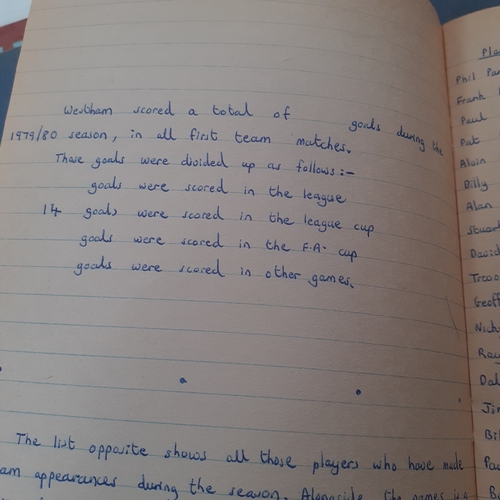 Westham scored a total of goals during the
1979/80 season, in all first team matches.
Those goals were divided up as follows:-
goals were scored in the league
14 goals were scored in the league cup
goals were scored in the F.A. cup
goals were scored in other games.
The list opposite shows all those players who have made
am appearances during the season. Alongside the games
Pla
Phil Par
Frank
Paul
Pat
Alvin
Billy
Alan
Stuart
David
Trevo
Geoff
Nich
Ray
Dal
Jim
Bil
Pau